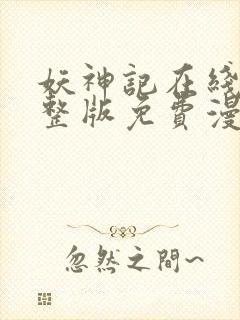 妖神記在綫
整版免費漫
忽然之間~